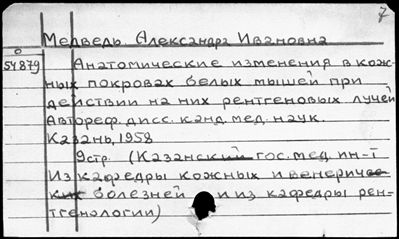 7
Медведь Александра Ивановна
54879
Анатомические изменения в кож-
ных покровах белых мышей при
действии на них рентгеновых лучей
Автореф. дисс. канд. мед. наук.
Казань, 1958
9стр. (Казанский гос. мед. ин-т
Из кафедры кожных и венериче-
ких болезней и из кафедры рен-
тгенологии)